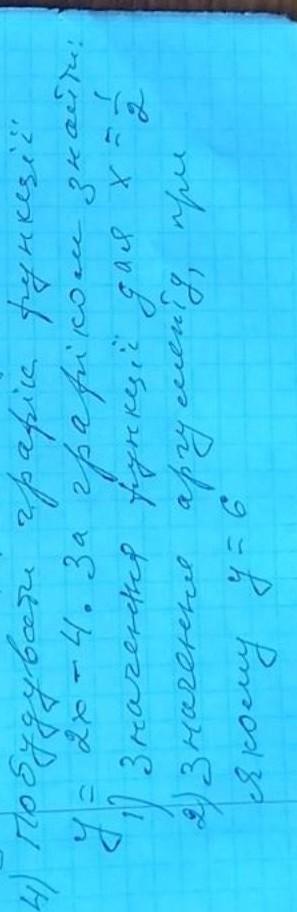 4) Побудувати графік функції
y = 2x - 4. За графіком знайти:
1) Значення функції для x = 1/2
2) Значення аргументу, при
якому y = 6